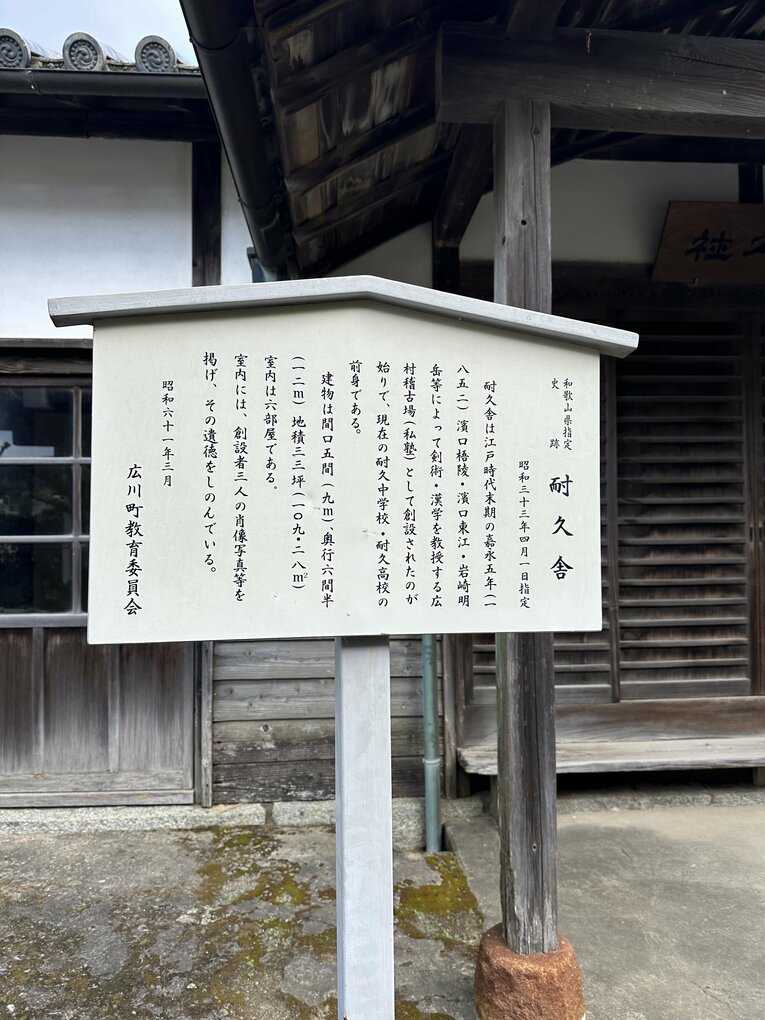 和歌山県指定
史跡
耐久舎
昭和三十三年四月一日指定
耐久舎は江戸時代末期の嘉永五年(一
八五二)濱口梧陵・濱口東江・岩崎明
岳等によって剣術・漢学を教授する広
村稽古場(私塾)として創設されたのが
始りで、現在の耐久中学校・耐久高校の
前身である。
建物は間口五間(九m)、奥行六間半
(一二m)地積三三坪(一〇九・二八m²)
室内は六部屋である。
室内には、創設者三人の肖像写真等を
掲げ、その遺徳をしのんでいる。
昭和六十一年三月
広川町教育委員会
社